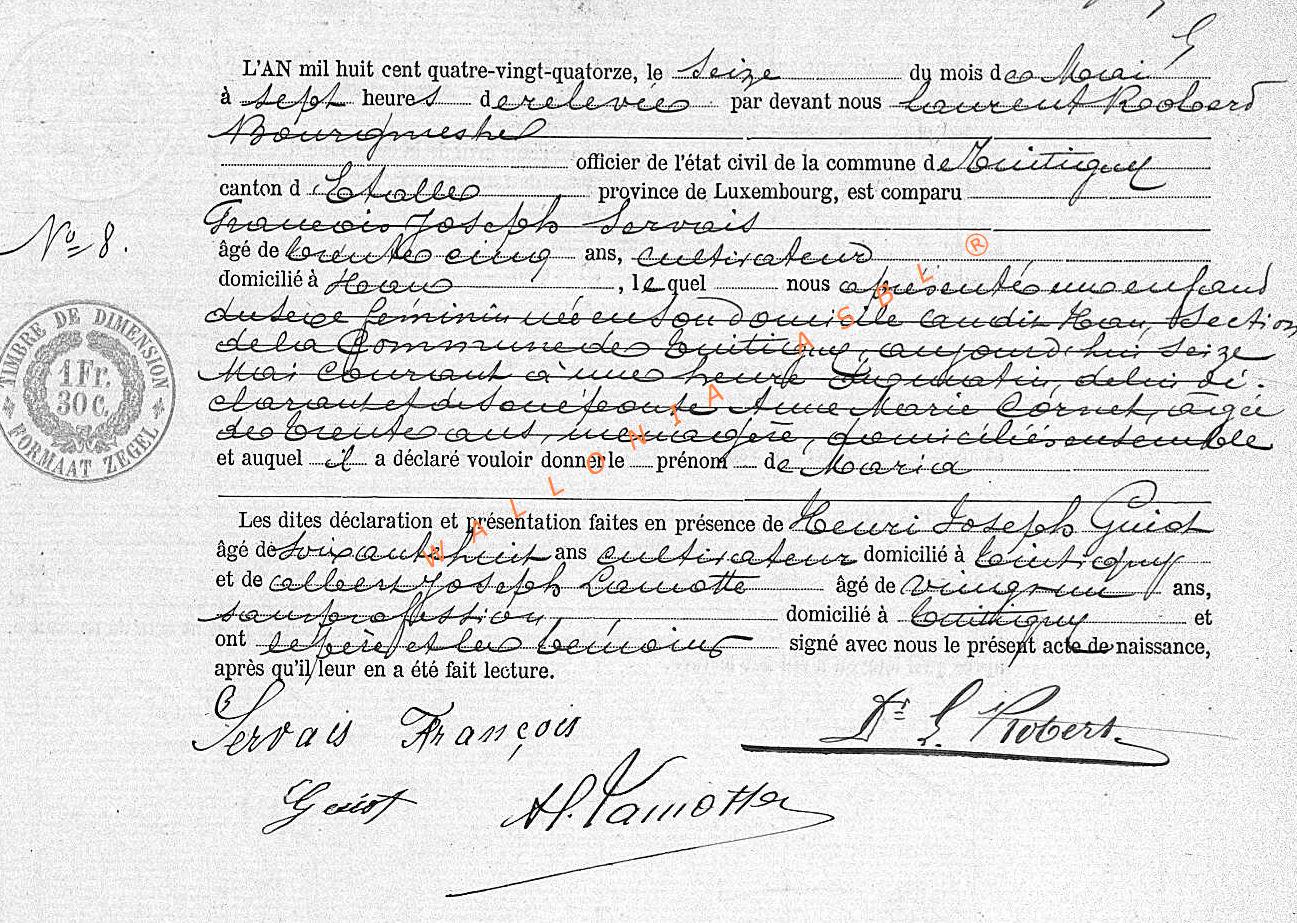 L'AN mil huit cent quatre-vingt-quatorze, le seize du mois de Mai
à sept heures de relevée par devant nous Laurent Robert
Bourgmestre
officier de l'état civil de la commune de Tintigny
canton d'Etalle province de Luxembourg, est comparu
François Joseph Servais
No 8.
âgé de trente cinq ans, cultivateur
domicilié à Han, lequel nous a présenté un enfant
du sexe féminin née en son domicile audit Han, section
de la Commune de Tintigny, aujourd'hui seize
Mai courant à une heure du matin, de lui dé-
clarant et de son épouse Anne Marie Cornet, âgée
de trente ans, ménagère, domiciliés ensemble
et auquel il a déclaré vouloir donner le prénom de Maria
Les dites déclaration et présentation faites en présence de Henri Joseph Guiot
âgé de soixante huit ans cultivateur domicilié à Tintigny
et de Albert Joseph Lamotte âgé de vingt un ans,
sans profession, domicilié à Tintigny et
ont le père et les témoins signé avec nous le présent acte de naissance,
après qu'il leur en a été fait lecture.
Servais François
Dr L Robert
Guiot
A. Lamotte
TIMBRE DE DIMENSION
1 Fr.
30 C.
FORMAAT ZEGEL
WALLONIA ASBL ®